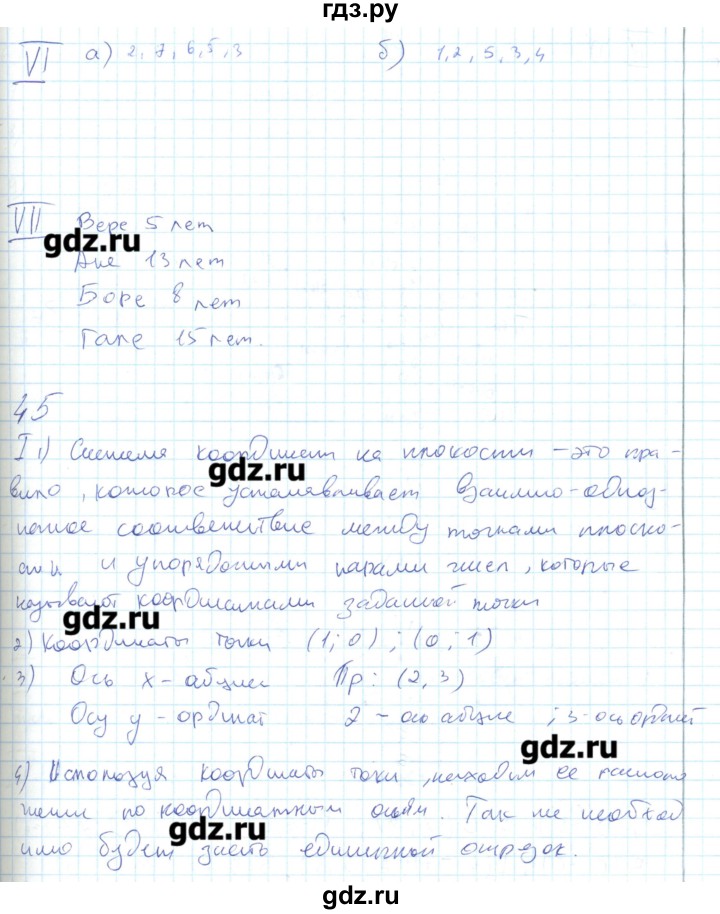 гдз.ру
VI а) 2, 7, 6, 5, 3 б) 1, 2, 5, 3, 4
VII Вере 5 лет
gdz.ru
Ане 13 лет
Боре 8 лет
Гале 15 лет.
45
I 1) Система координат на плоскости – это пра-
gdz.ru
вило, которое устанавливает взаимно-одноз-
начное соответствие между точками плоско-
сти и упорядочными парами чисел, которые
называют координатами заданной точки
gdz.ru
2) Координаты точки (1; 0) ; (0; 1)
3) Ось х - абцисс Пр: (2, 3)
Осу у - ординат 2 - ось абцисс ; 3 - ось ординат
gdz.ru
4) Используя координаты точки, находим ее располо
жение по координатным осям. Так же необход
gdz.ru
имо будет знать единичный отрезок.
gdz.ru